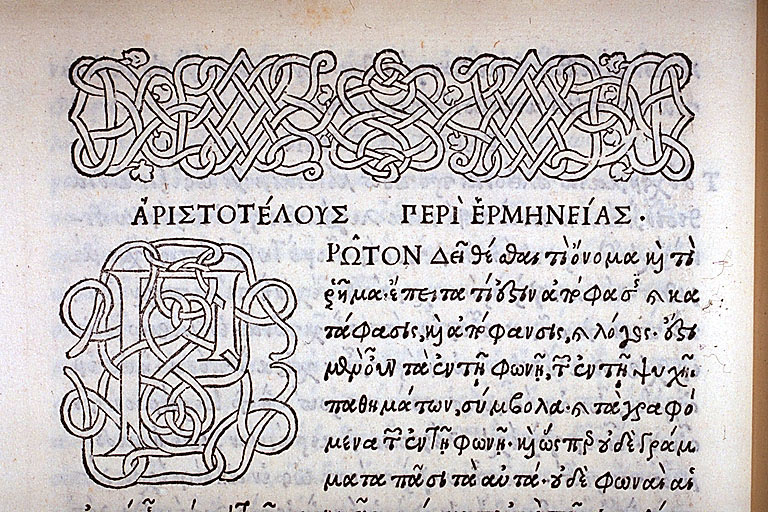 ἈΡΙΣΤΟΤΈΛΟΥΣ ΠΕΡῚ ἙΡΜΗΝΕΊΑΣ.
ΠΡΩ͂ΤΟΝ ΔΕῖ θέσθαι τί ὄνομα καὶ τί
ῥῆμα· ἔπειτα τί ἐστιν ἀπόφασις καὶ κα
τάφασις, καὶ ἀπόφανσις, καὶ λόγος· ἔστι
μὲν οὖν τὰ ἐν τῇ φωνῇ, τῶν ἐν τῇ ψυχῇ
παθημάτων, σύμβολα· καὶ τὰ γραφό
μενα τῶν ἐν τῇ φωνῇ· καὶ ὥσπερ οὐδὲ γράμ
ματα πᾶσι τὰ αὐτά· οὐδὲ φωναὶ αἱ